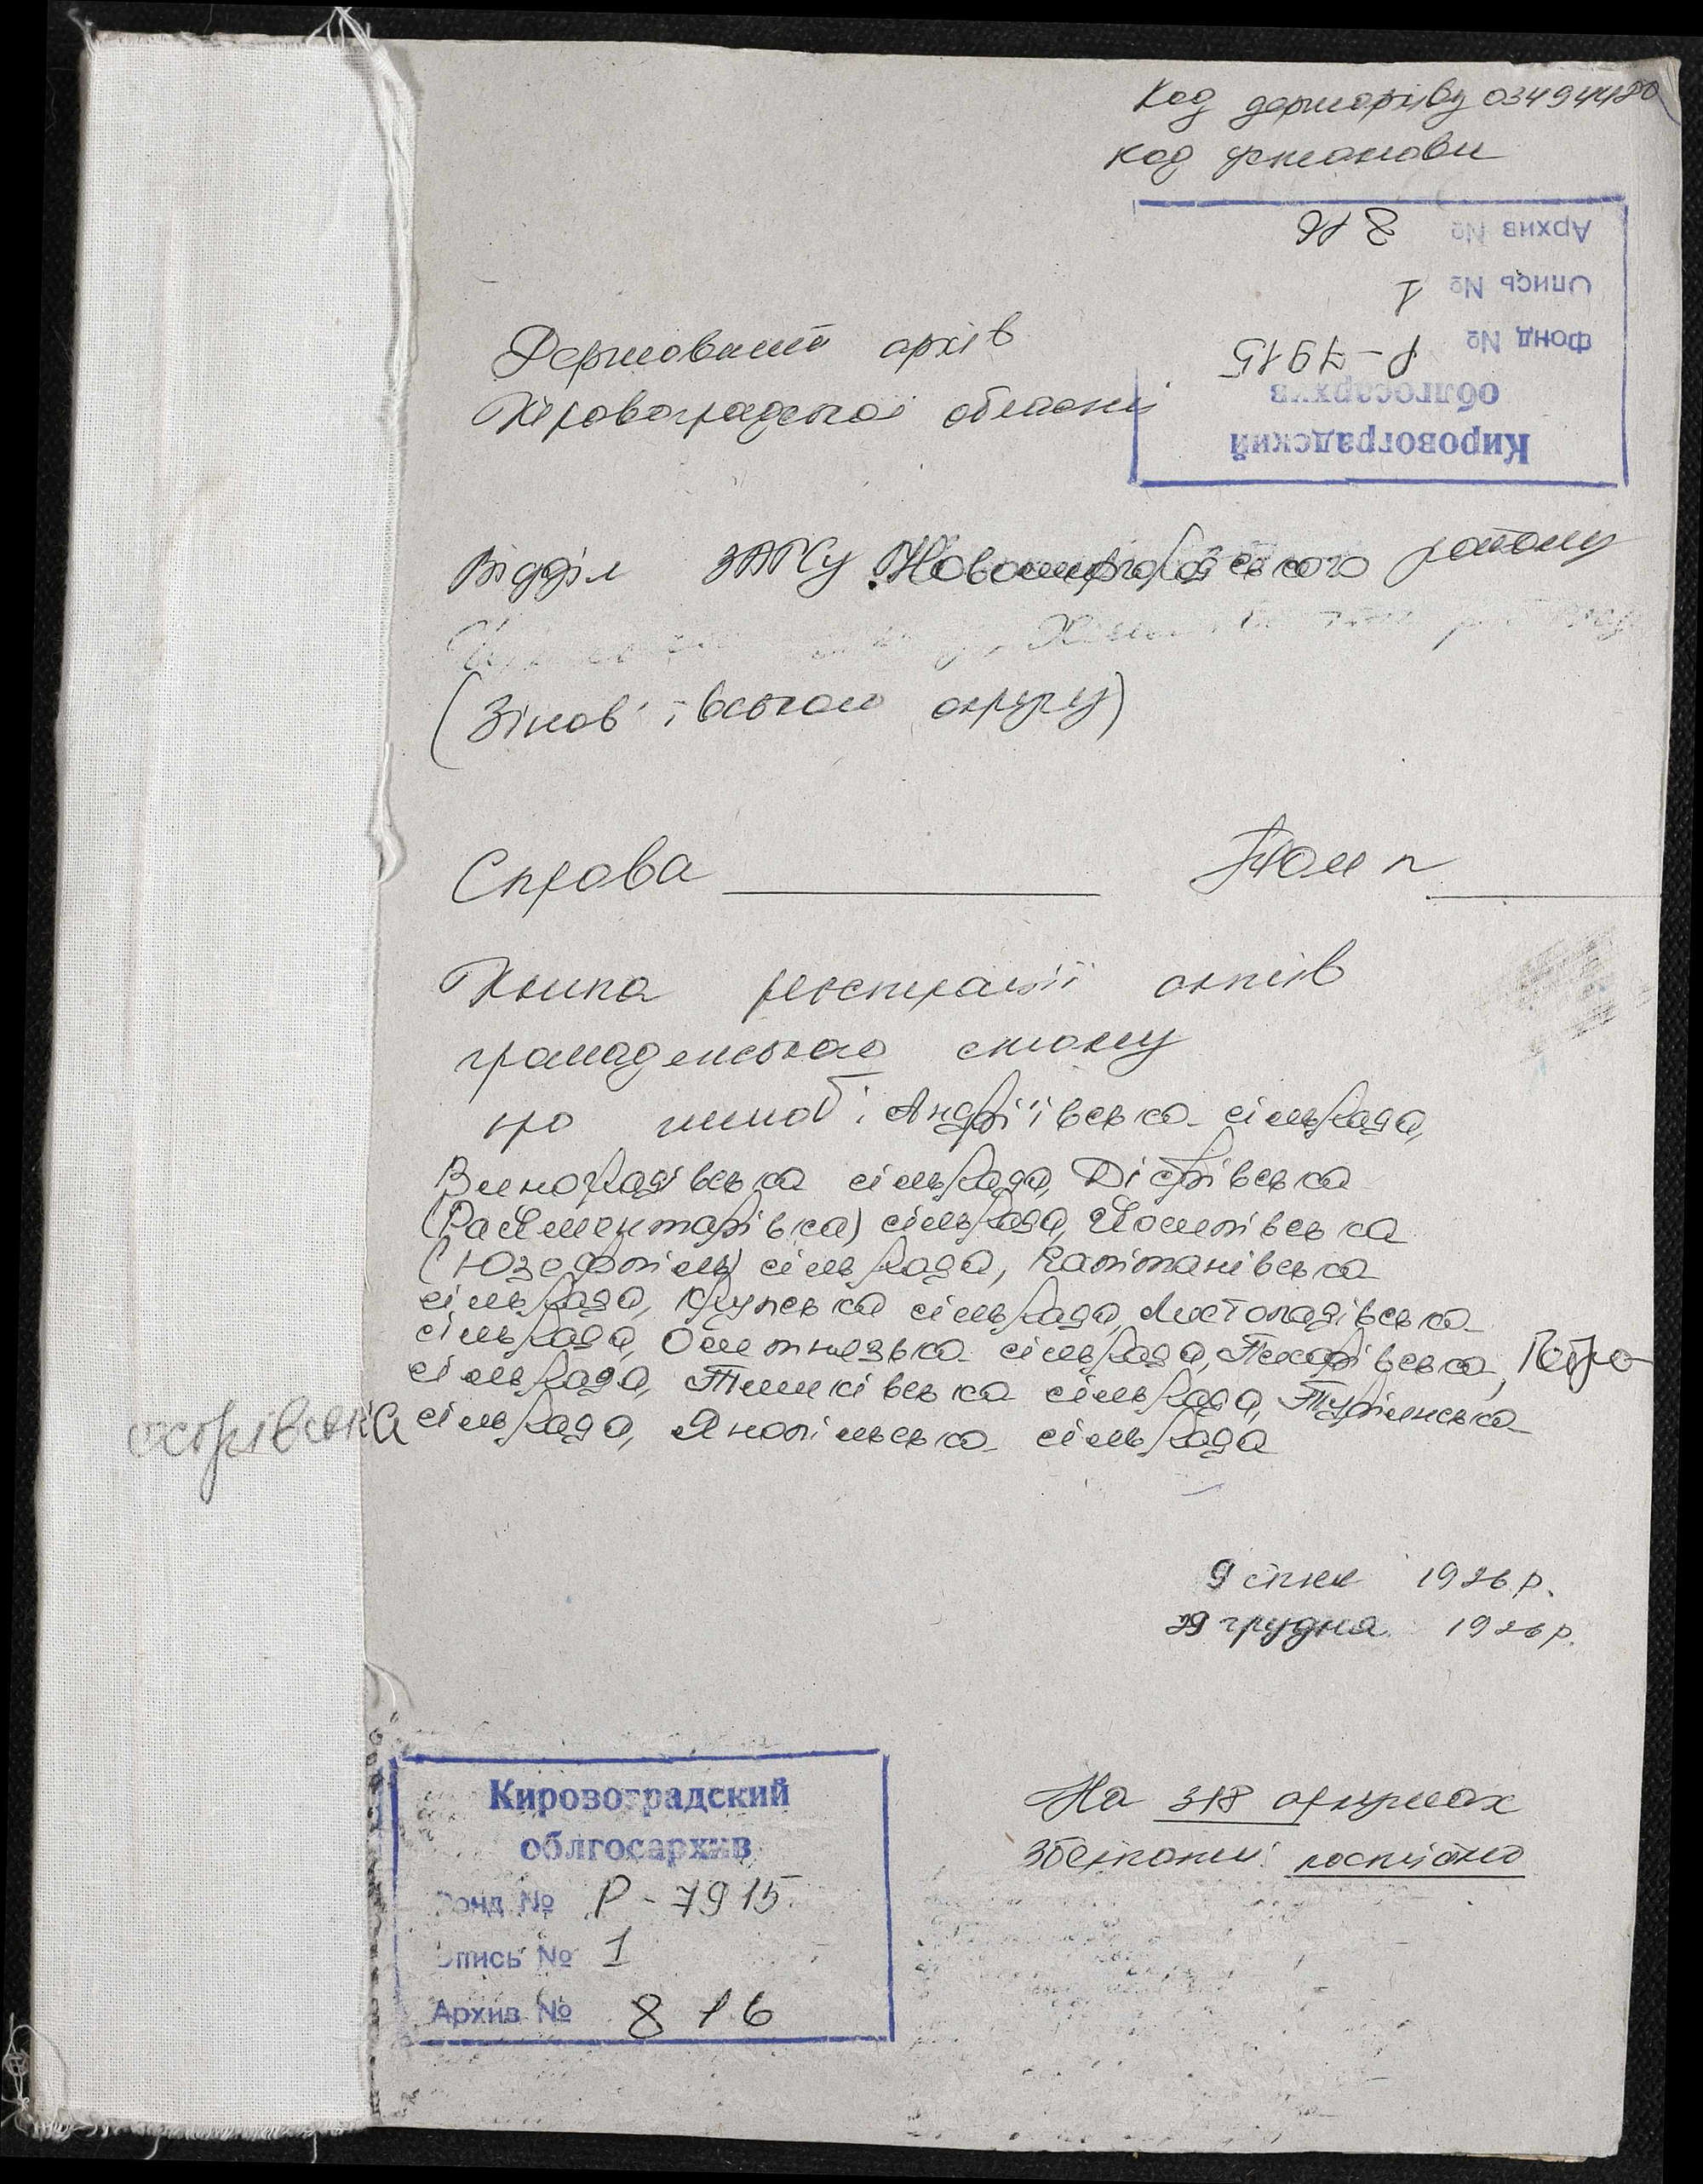 Код держархіву 03494480
Код установи
Архив № 816
Опись № 1
Фонд № Р-7915
облгосархив
Кировоградский
Державний архів
Кіровоградської області
Відділ ЗАГСу Новомиргородського району
(Зінов'ївського округу)
Справа Том n
Книга реєстрації актів
громадянського стану
про шлюб: Андріївська сільрада,
Виноградівська сільрада, Дібрівська
(Райментарівка) сільрада, Йосипівська
(Юзефпіль) сільрада, Капітанівська
сільрада, Кручська сільрада, Листопадівська
сільрада, Оситнязька сільрада, Пекарівська, Петро-
острівська
сільрада, Тишківська сільрада, Турійська
сільрада, Янопільська сільрада
9 січня 1926 р.
29 грудня 1926 р.
На 318 аркушах
Зберігати: постійно
Кировоградский
облгосархив
Фонд № Р-7915
Опись № 1
Архив № 816